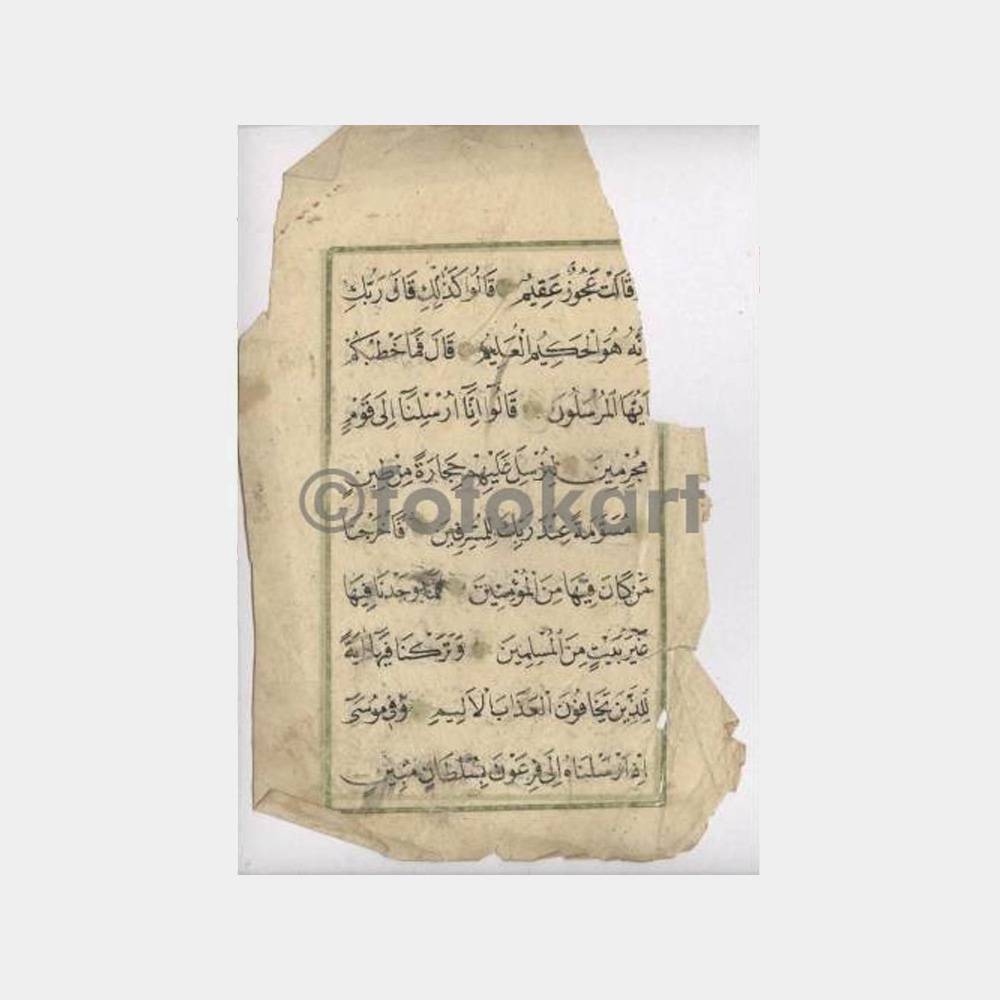 وَقَالَتْ عَجُوزٌ عَقِيمٌ قَالُوا كَذٰلِكِ قَالَ رَبُّكِ
اِنَّهُ هُوَ الْحَكِيمُ الْعَلِيمُ قَالَ فَمَا خَطْبُكُمْ
اَيُّهَا الْمُرْسَلُونَ قَالُوا اِنَّا اُرْسِلْنَا اِلٰى قَوْمٍ
مُجْرِمِينَ لِنُرْسِلَ عَلَيْهِمْ حِجَارَةً مِنْ طِينٍ
©fotokart
مُسَوَّمَةً عِنْدَ رَبِّكَ لِلْمُسْرِفِينَ فَاَخْرَجْنَا
مَنْ كَانَ فِيهَا مِنَ الْمُؤْمِنِينَ فَمَا وَجَدْنَا فِيهَا
غَيْرَ بَيْتٍ مِنَ الْمُسْلِمِينَ وَتَرَكْنَا فِيهَا اٰيَةً
لِلَّذِينَ يَخَافُونَ الْعَذَابَ الْاَلِيمَ وَفِي مُوسٰى
اِذْ اَرْسَلْنَاهُ اِلٰى فِرْعَوْنَ بِسُلْطَانٍ مُبِينٍ